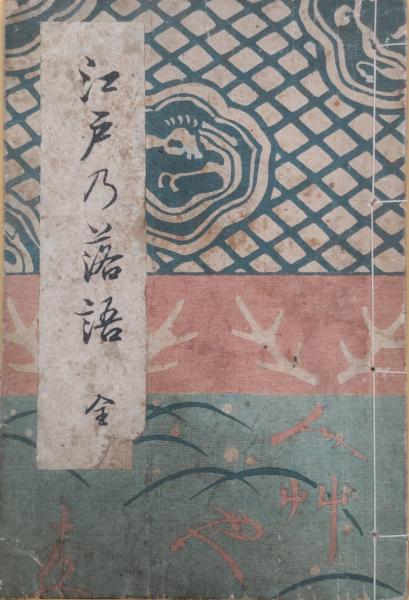 江戸乃落語 全